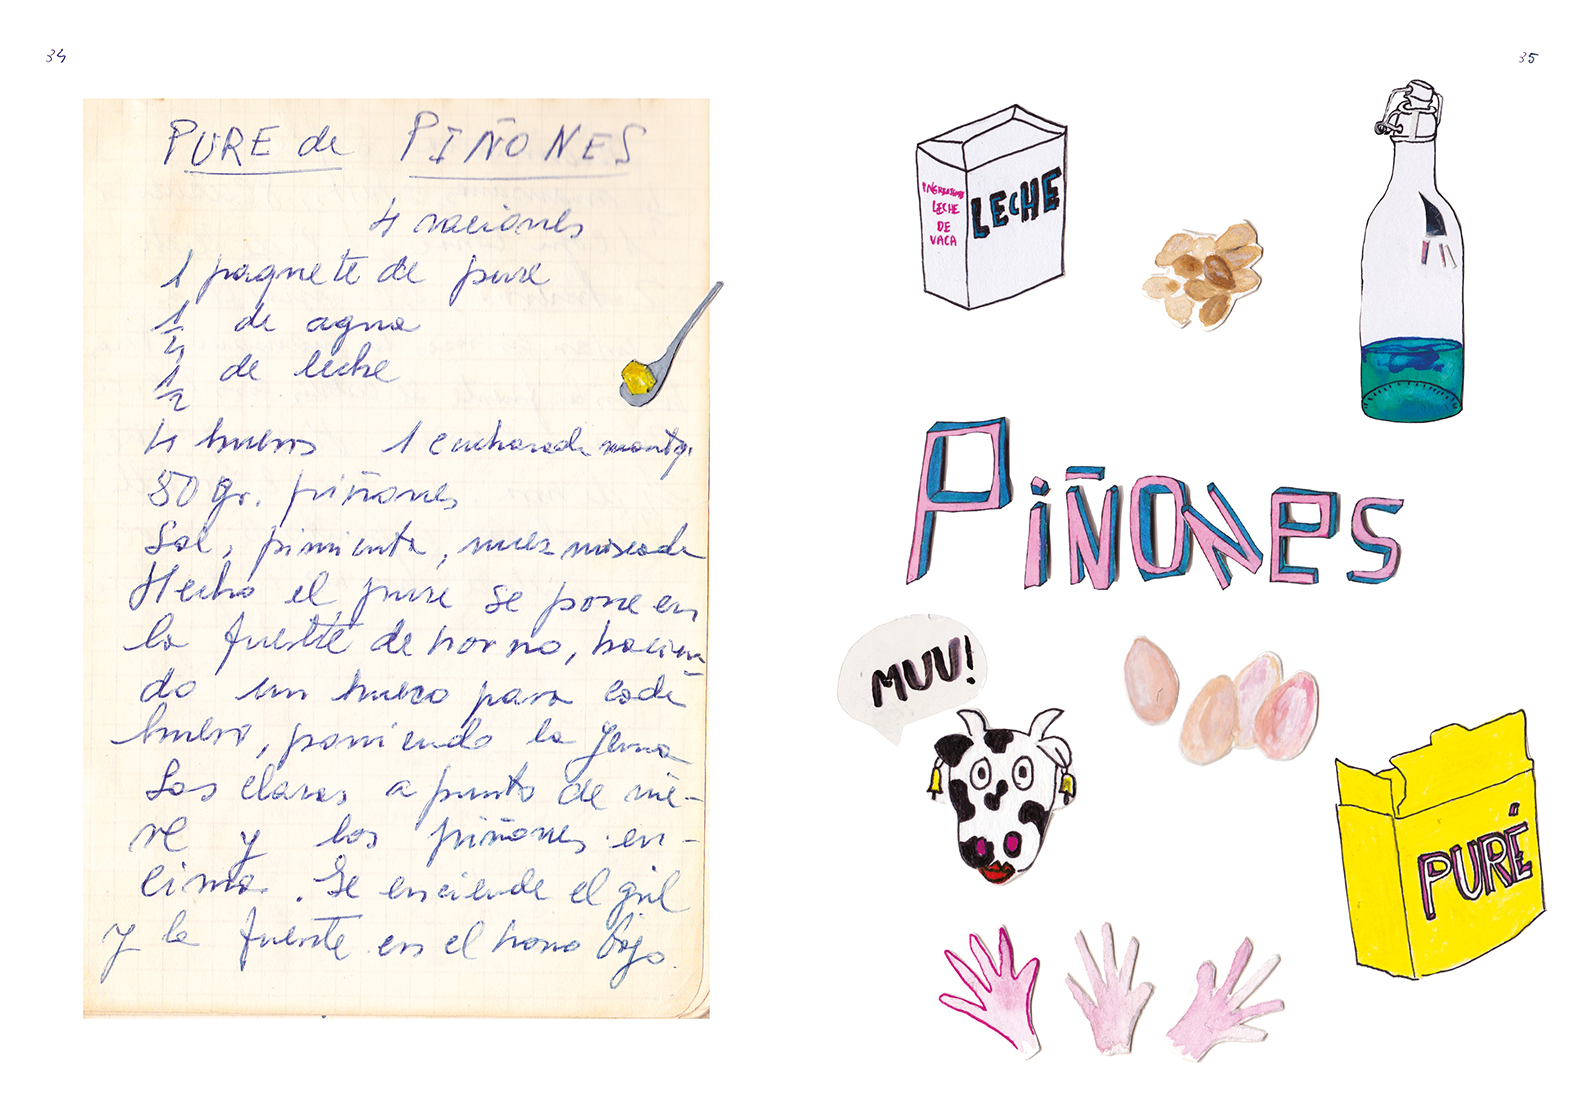 34
PURE de PIÑONES
4 raciones
1 paquete de pure
1/4 de agua
1/2 de leche
4 huevos 1 cucharada mantq.
50 gr. piñones
Sal, pimienta, nuez moscada
Hecho el pure se pone en
la fuente de horno, hacien-
do un hueco para cada
huevo, poniendo la yema
Las claras a punto de nie-
ve y los piñones en-
cima. Se enciende el gril
y la fuente en el horno bajo.
35
INGREDIENTE
LECHE
DE
VACA
LECHE
PIÑONES
MUU!
PURÉ